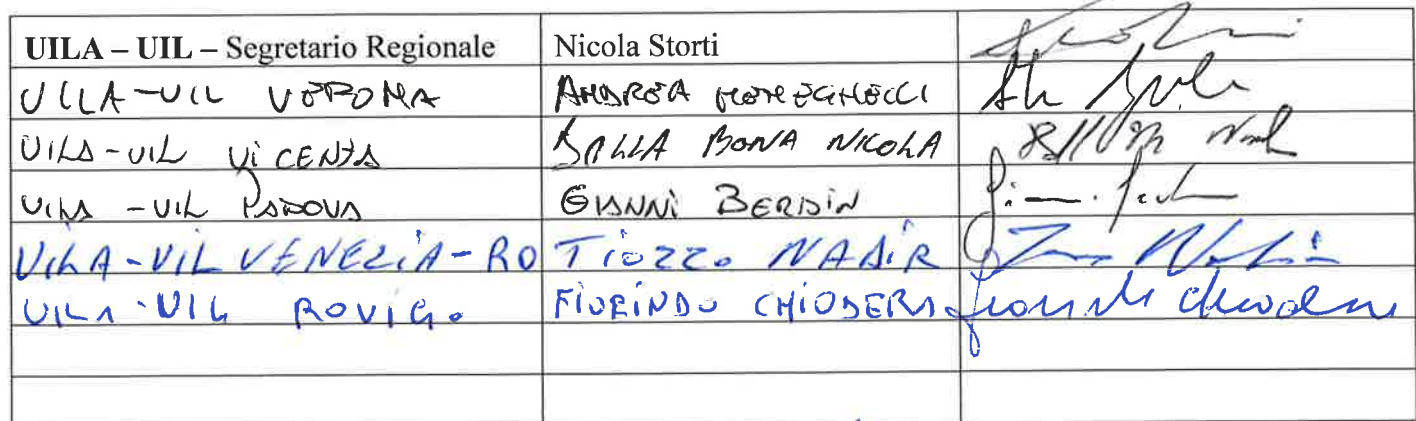 UILA – UIL – Segretario Regionale Nicola Storti
UILA-UIL VERONA ANDREA MENEGHELLI
UILA-UIL ViCENZA DALLA BONA NICOLA
UILA -UIL PADOVA GIANNi BERDiN
UiLA-UIL VENEZiA-RO TiOZZO NADiR
UILA-UIL ROVIGO FIORINDO CHIODERA